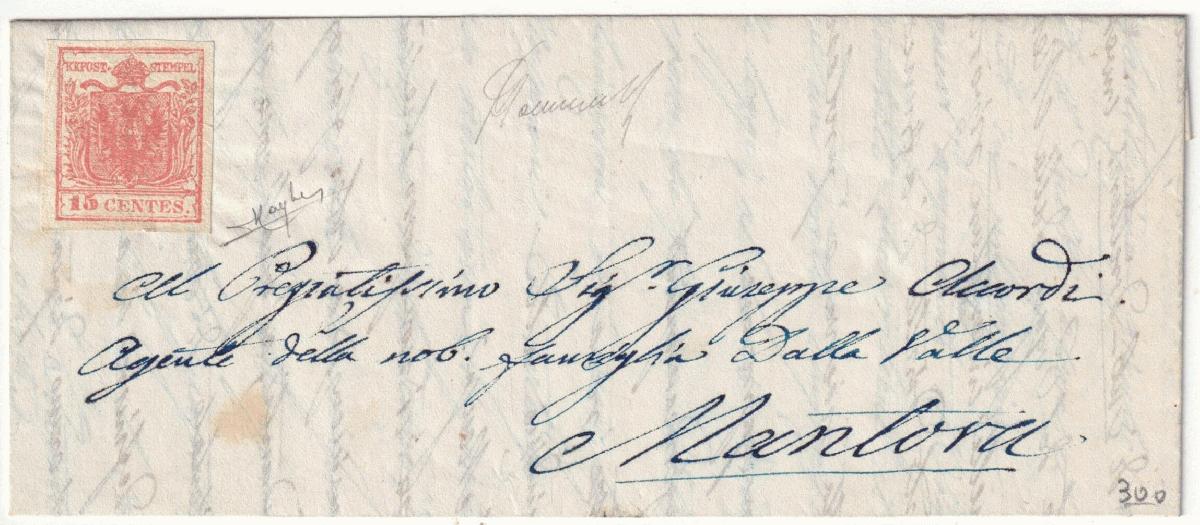 KKPOST-STEMPEL
15 CENTES.
Al Pregiatissimo Sigr. Giuseppe Accordi.
Agente della nob. famiglia Dalla Valle
Mantova.
300